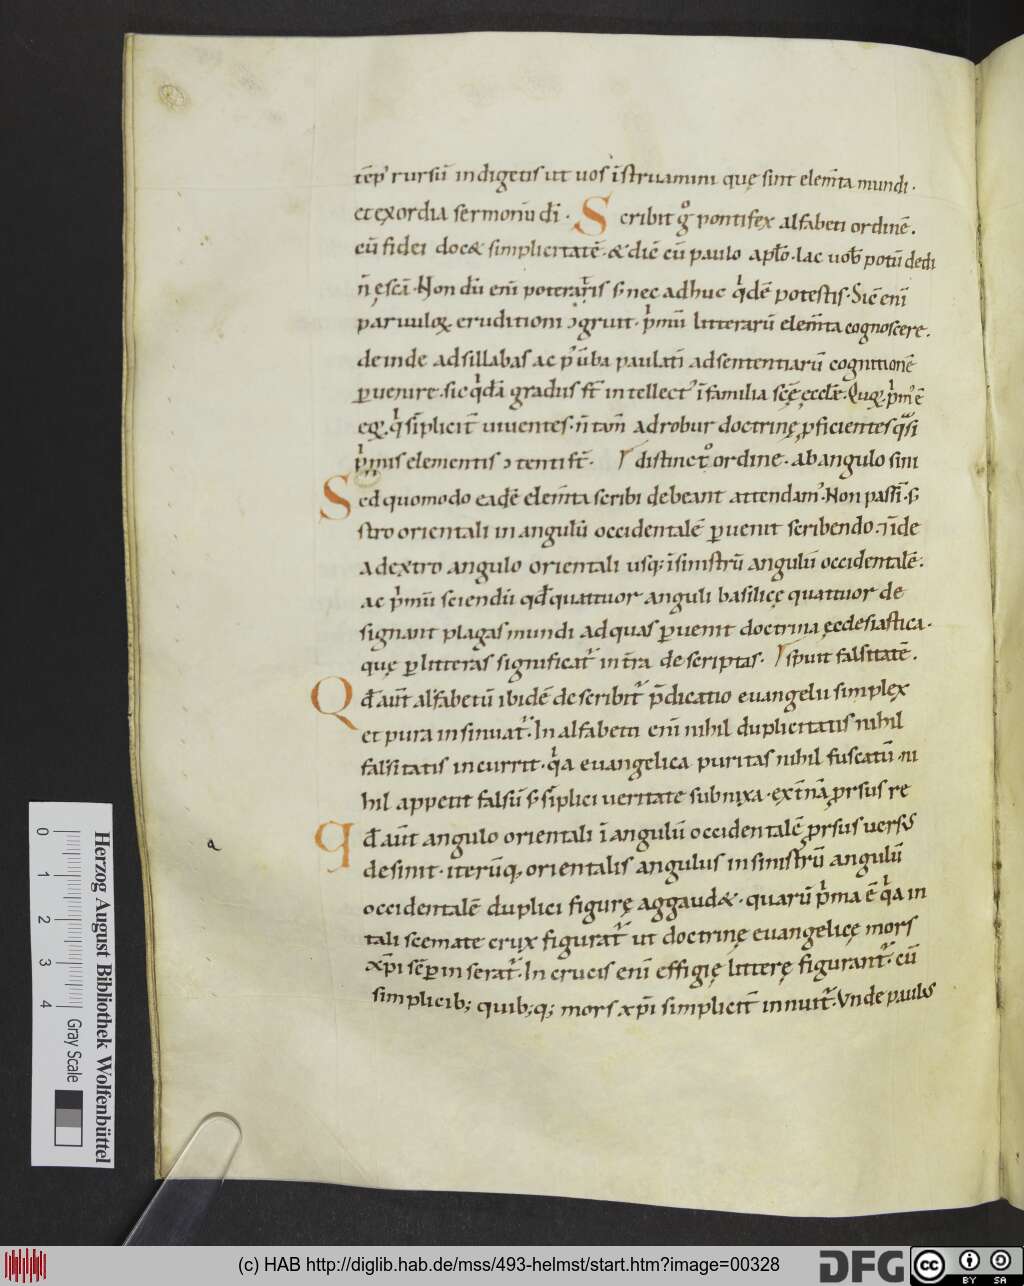 tēp᾽ rursū indigetis ut uos īstruamini quę sint elem̄ta mundi.
et exordia sermonū di̅. Scribit gͦ pontifex alfabeti ordinē.
cū fidei docet simplicitatē. & dic̄ cū paulo ap̄lo. lac uob̄ potū dedi
n̄ escā. Non dū eni̅ poterat̄is s̄ nec adhuc qͥdē potestis. Sic eni̅
paruuloꝝ eruditioni ɔgruit. pͥmū litterarū elem̄ta cognoscere.
deinde ad sillabas ac p᾽ ūba paulati̅ ad sententiarū cognitionē
ꝑuenire. sic qͥdā gradus st̄ intellect᾽ ī familia scę̄ ęccłę. Quoꝝ pͥm᾽ ē
eoꝝ. qͥ sīplicit̄ uiuentes. n̄ tam̄ ad robur doctrinę ꝓficientes qͣsi
pͥmis elementis ɔtenti st̄. distinctͦ ordine. ab angulo sini
Sed quomodo eadē elem̄ta scribi debeant attendam᾽. Non passi̅. s̄
stro orientali in angulū occidentalē ꝑuenit scribendo. īde
a dextro angulo orientali usq; ī sinistrū angulū occidentalē.
ac pͥmū sciendū qđ quattuor anguli basilicę quattuor de
signant plagas mundi ad quas ꝑuenit doctrina ęcclesiastica.
quę ꝑ litteras significat᾽ in t̄ra descriptas. spuit falsitatē.
Qđ aut̄ alfabetū ibidē describit᾽ p̄dicatio euangelii simplex
et pura insinuat᾽. In alfabeti eni̅ nihil duplicitatis nihil
falsitatis incurrit. qͥa euangelica puritas nihil fuscatū. ni
hil appetit falsū s̄ sīplici ueritate subnixa. ext̄nā ꝓrsus re
qđ aut̄ angulo orientali ī angulū occidentalē ꝓrsus uersus
desinit. iterūq; orientalis angulus in sinistrū angulū
occidentalē duplici figurę aggaudet. quarū pͥma ē qͥa in
tali scemate crux figurat᾽ ut doctrinę euangelicę mors
xp̄i sēꝑ inserat᾽. In crucis eni̅ effigię litterę figurant᾽. cū
simplicib; quib;q; mors xp̄i simplicit̄ innuit᾽. Vnde paulus
a
Herzog August Bibliothek Wolfenbüttel
0 1 2 3 4 Gray Scale
(c) HAB http://diglib.hab.de/mss/493-helmst/start.htm?image=00328
DFG cc BY SA